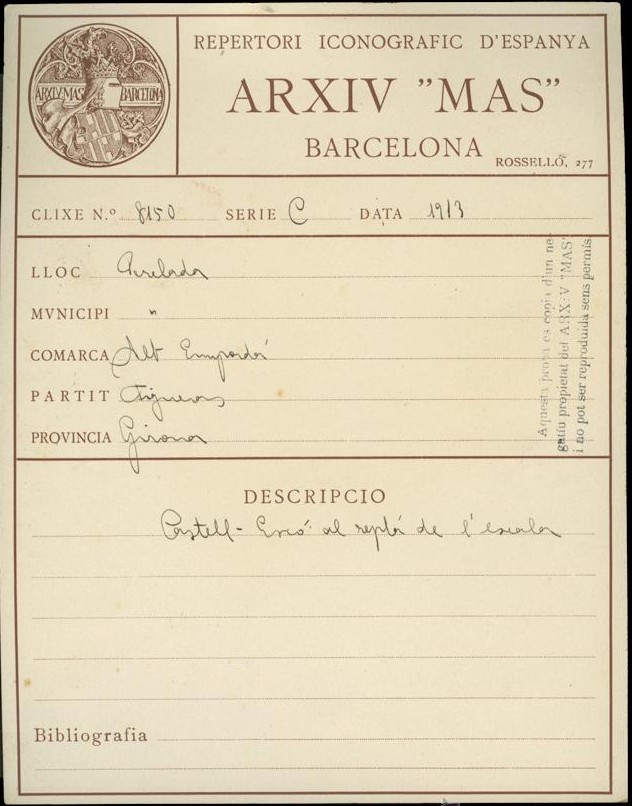 REPERTORI ICONOGRAFIC D'ESPANYA
ARXIV "MAS"
BARCELONA
ROSSELLÓ, 277
ARXIV·MAS BARCELONA
CLIXE N.º 8150 SERIE C DATA 1913
LLOC Perelada
MVNICIPI "
COMARCA Alt Empordá
PARTIT Figueras
PROVINCIA Girona
Aquesta prova es copia d'un ne-
gatiu propietat del ARXIV "MAS"
i no pot ser reproduida sens permis
DESCRIPCIO
Castell - Escó al replá de l'escala
Bibliografia